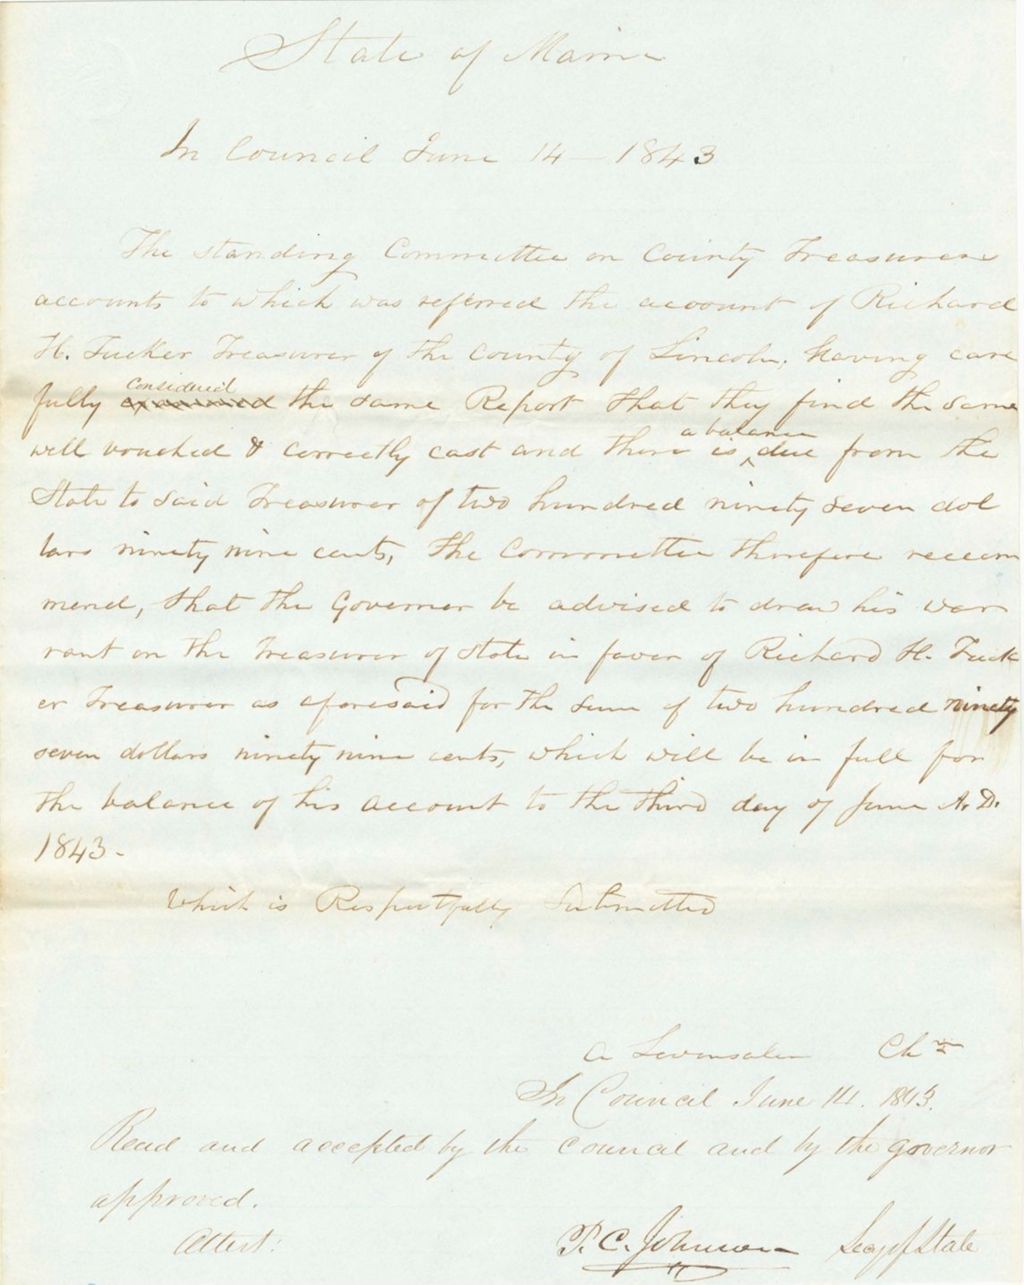 State of Maine
In Council June 14 - 1843
The standing Committee on County Treasurers
accounts to which was referred the account of Richard
H. Tucker Treasurer of the County of Lincoln, having care
fully examined considered the same Report that they find the same
well vouched & correctly cast and there is a balance due from the
State to said Treasurer of two hundred ninety seven dol
lars ninety nine cents, the Committee therefore recom
mend, that the Governor be advised to draw his war
rant on the Treasurer of State in favor of Richard H. Tuck
er Treasurer as aforesaid for the sum of two hundred ninety
seven dollars ninety nine cents, which will be in full for
the balance of his account to the third day of June A.D.
1843-
Which is Respectfully Submitted
A Levensaler Chn
In Council June 14. 1843.
Read and accepted by the council and by the governor
approved.
Attest:
P. C. Johnson Secy of State